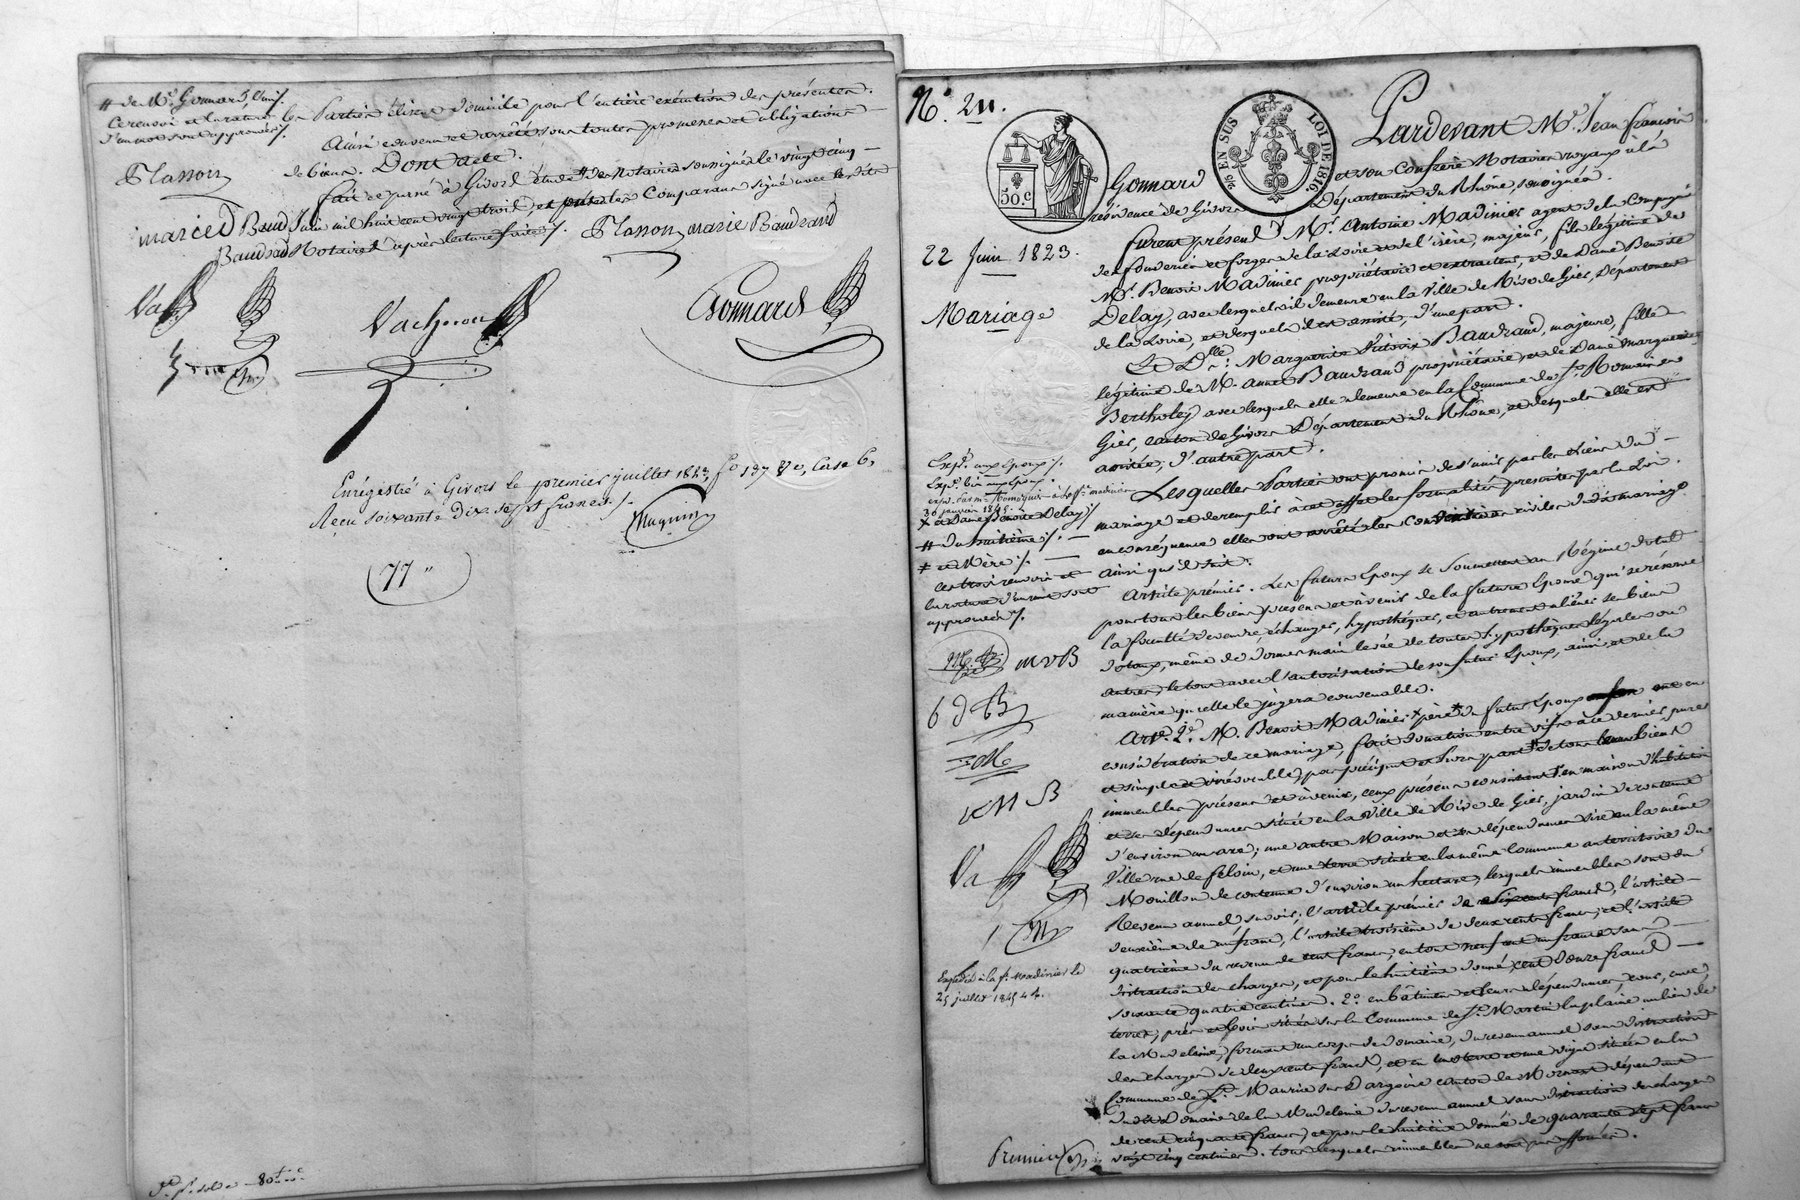 # de Mr. Gonnard, l'un /.
Ce renvoi et la rature
d'un mot sont approuvés /.
les Parties élisent domicile pour l'entière exécution des présentes.
Ainsi convenu et arrêté, sous toutes promesses et obligations
de biens. Dont acte.
Fait et passé à Givors, étude # des Notaires soussignés le vingt cinq
Juin mil huit cent vingt trois, et les Comparans signé avec lesdits
Notaires après lecture faite /.
Plasson
marie Baudrand
Plasson
Baudrand
Vachon
Gonnard
Enrégistré à Givors le premier juillet 1823, fo 197 Vo, Case 6,
Reçu soixante Dix sept francs /.
Huguin
(77 "
No. 211.
22 Juin 1823.
Mariage
50.c
EN SUS LOI DE 1816.
Pardevant Me. Jean françois
Gonnard et son Confrère Notaires royaux à la
résidence de Givors Département du Rhône, soussignés.
furent présens Mr. Antoine Madinier agent de la Compagnie
des fonderies et forges de la Loire et de l'isère, majeur, fils légitime de
Mr. Benoit Madinier propriétaire et extracteur, et de Dame Benoite
Delay, avec lesquels il demeure en la Ville de Rive de Gier, Département
de la Loire, et desquels il est assisté, d'une part.
Et Dlle. Marguerite Victoire Baudrand, majeure, fille
légitime de M. annet Baudrand propriétaire, et de Dame Marguerite
Bertholey avec lesquels elle demeure en la Commune de St. Romain en
Gier, canton de Givors Département du Rhône, et desquels elle est
assistée, d'autre part.
Lesquelles Parties ont promis de s'unir par les liens du
mariage et de remplir à cet effet les formalités prescrites par la Loi.
en conséquence elles ont arrêté les Conventions civiles dudit mariage
ainsi qu'il suit.
Article prémier. Les futurs Epoux se soumettent au Régime dotal
pour tous les biens présens et à venir de la future Epouse qui se réserve
la faculté de vendre, échanger, hypothéquer, et autrement aliéner ses biens
dotaux, même de donner main levée de toutes hypothèques légales ou
autres, le tout avec l'autorisation de son futur Epoux, ainsi et de la
manière qu'elle le jugera convenable.
Art. 2e. M. Benoit Madinier x père du futur Epoux en
considération de ce mariage, fait donation entre vifs à ce dernier, pure
et simple et irrévocable, par préciput et hors part # de tous biens
immeubles présens et à venir, ceux présens consistant 1° en maison d'habitation
et ses dépendances située en la Ville de Rive de Gier, jardin de contenue
d'environ un are; une autre Maison et ses dépendances sise en la même
Ville rue de féloin, et une terre située en la même Commune au territoire du
Mouillon de contenue d'environ un hectare, lesquels immeubles sont du
Revenu annuel savoir; l'article prémier de six cents francs, l'article
deuxième de francs, l'article troisième de deux cents francs; et l'article
quatrième du revenu de cent francs, en tout neuf cent un francs sans
distraction des charges, et pour le huitième donné, cent douze francs
soixante quatre centimes. 2° en bâtimens et leurs dépendances, cour, cuve,
terres, prés et bois situés sur la Commune de St. Martin la plaine au lieu de
la Madelaine, formant un corps de domaine, du revenu annuel sans distraction
des charges de deux cents francs, et en une terre et une vigne située en la
Commune de St. Maurice sur Dargoire canton de Mornant dépendant
dudit Domaine de la Madelaine du revenu annuel sans distraction des charges
de cent cinquante francs, et pour le huitième donné de quarante sept francs
vingt cinq centimes. tous lesquels immeubles ne sont pas affermés.
Expn. aux Epoux /.
30 janvier 1845.
x et Dame Benoite Delay /.
# du huitième /.
+ et Mère /.
Ces trois renvois et
la rature d'un mot sont
approuvés /.
M v B
Expédié à la fe. Madinier le
25 juillet 1845
Premier